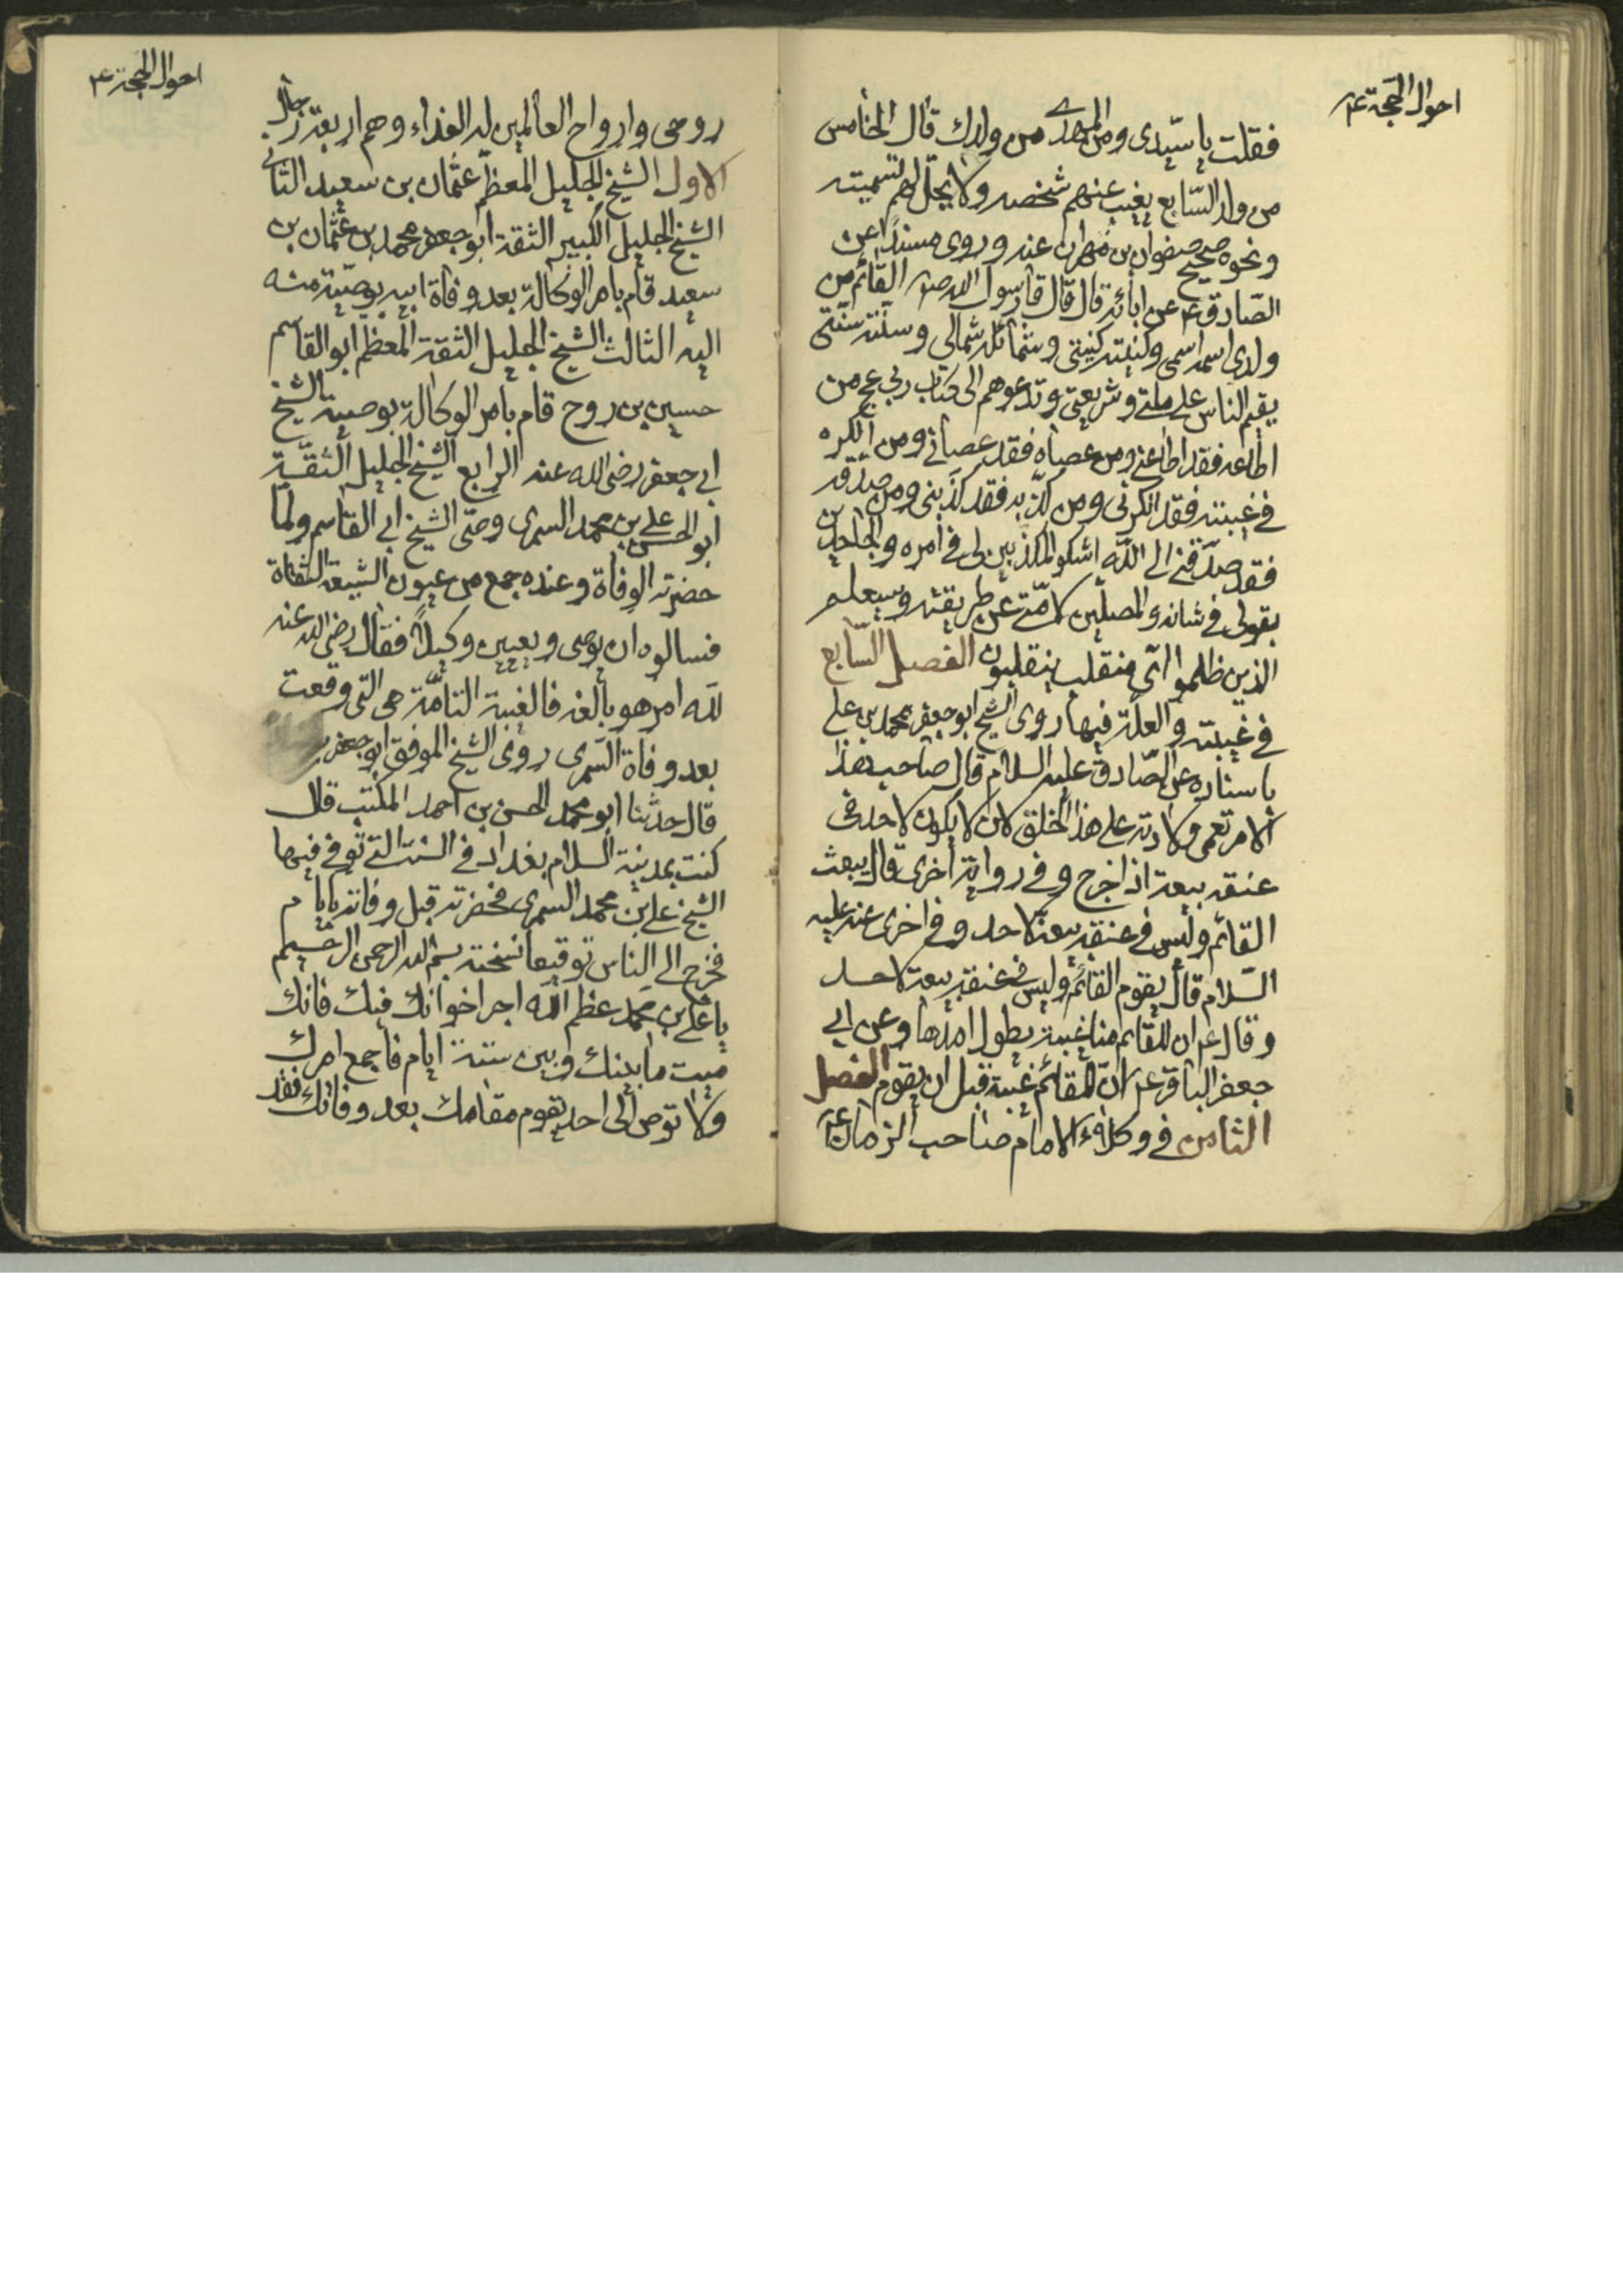 احوال الحجة ع
فقلت يا سيّدى ومن المهدى من ولدك قال الخامس
من ولد السّابع يغيب عنهم شخصه ولا يحلّ لهم تسميته
ونحوه صحيح صفوان بن مهران عنه وروى مسنداً عن
الصّادق ع عن ابائه قال قال رسول الله ص القائم من
ولدى اسمه اسمى وكنيته كنيتى وشمائله شمائلى وسنّته سنّتى
يقيم الناس على ملتى وشريعتى وتدعوهم الى كتاب ربى عج من
اطاعه فقد اطاعنى ومن عصاه فقد عصانى ومن انكره
فى غيبته فقد انكرنى ومن كذّبه فقد كذّبنى ومن صدّقه
فقد صدّقنى الى اللّه اشكو المكذّبين لى فى امره والجاحدين
بقولى فى شانه والمضلين لامّتى عن طريقته وسيعلم
الذين ظلموا اىّ منقلب ينقلبون الفصل السّابع
فى غيبته والعلّة فيها روى الشيخ ابو جعفر محمد بن على
باسناده عن الصّادق عليه السلام قال صاحب هذا
الامر تعمى ولادته على هذا الخلق لان لا يكون لاحد فى
عنقه بيعة اذا خرج وفى رواية اخرى قال يبعث
القائم وليس فى عنقه بيعة لاحد وفى اخرى عنه عليه
السّلام قال يقوم القائم وليس فى عنقه بيعة لاحد
وقال ع ان للقائم منا غيبة يطول امدها وعن ابى
جعفر الباقر ع انّ للقائم غيبة قبل ان يقوم الفصل
الثامن فى وكلاء الامام صاحب الزمان ع
احوال الحجة ع
روحى وارواح العالمين له الفداء وهم اربعة رجال
الاول الشيخ الجليل المعظم عثمان بن سعيد الثانى
الشيخ الجليل الكبير الثقة ابو جعفر محمد بن عثمان بن
سعيد قام بامر الوكالة بعد وفاة ابيه بوصيّة منه
اليه الثالث الشيخ الجليل الثقة المعظم ابو القاسم
حسين بن روح قام بامر الوكالة بوصية الشيخ
ابى جعفر رضى الله عنه الرابع الشيخ الجليل الثقة
ابو الحسن على بن محمد السمرى وصّى الشيخ ابى القاسم ولمّا
حضرته الوفاة وعنده جمع من عيون الشيعة الثقاة
فسالوه ان يوصى ويعين وكيلاً فقال رضى الله عنه
للّه امر هو بالغه فالغيبة التامّة هى التى وقعت
بعد وفاة السّمرى روى الشيخ الموفق ابو جعفر
قال حدثنا ابو محمد الحسن بن احمد المكتب قال
كنت بمدينة السلام بغداد فى السنة التى توفى فيها
الشيخ على بن محمد السمرى فحضرته قبل وفاته بايام
فخرج الى الناس توقيعا نسخته بسم الله الرحمن الرحيم
يا على بن محمد عظم الله اجر اخوانك فيك فانك
ميت ما بينك وبين ستة ايام فاجمع امرك
ولا توص الى احد يقوم مقامك بعد وفاتك فقد